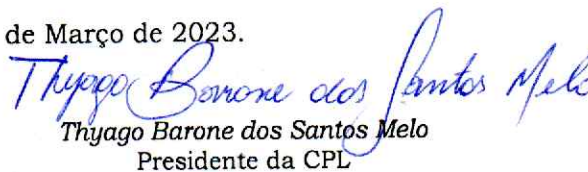 de Março de 2023.
Thyago Barone dos Santos Melo
Thyago Barone dos Santos Melo
Presidente da CPL